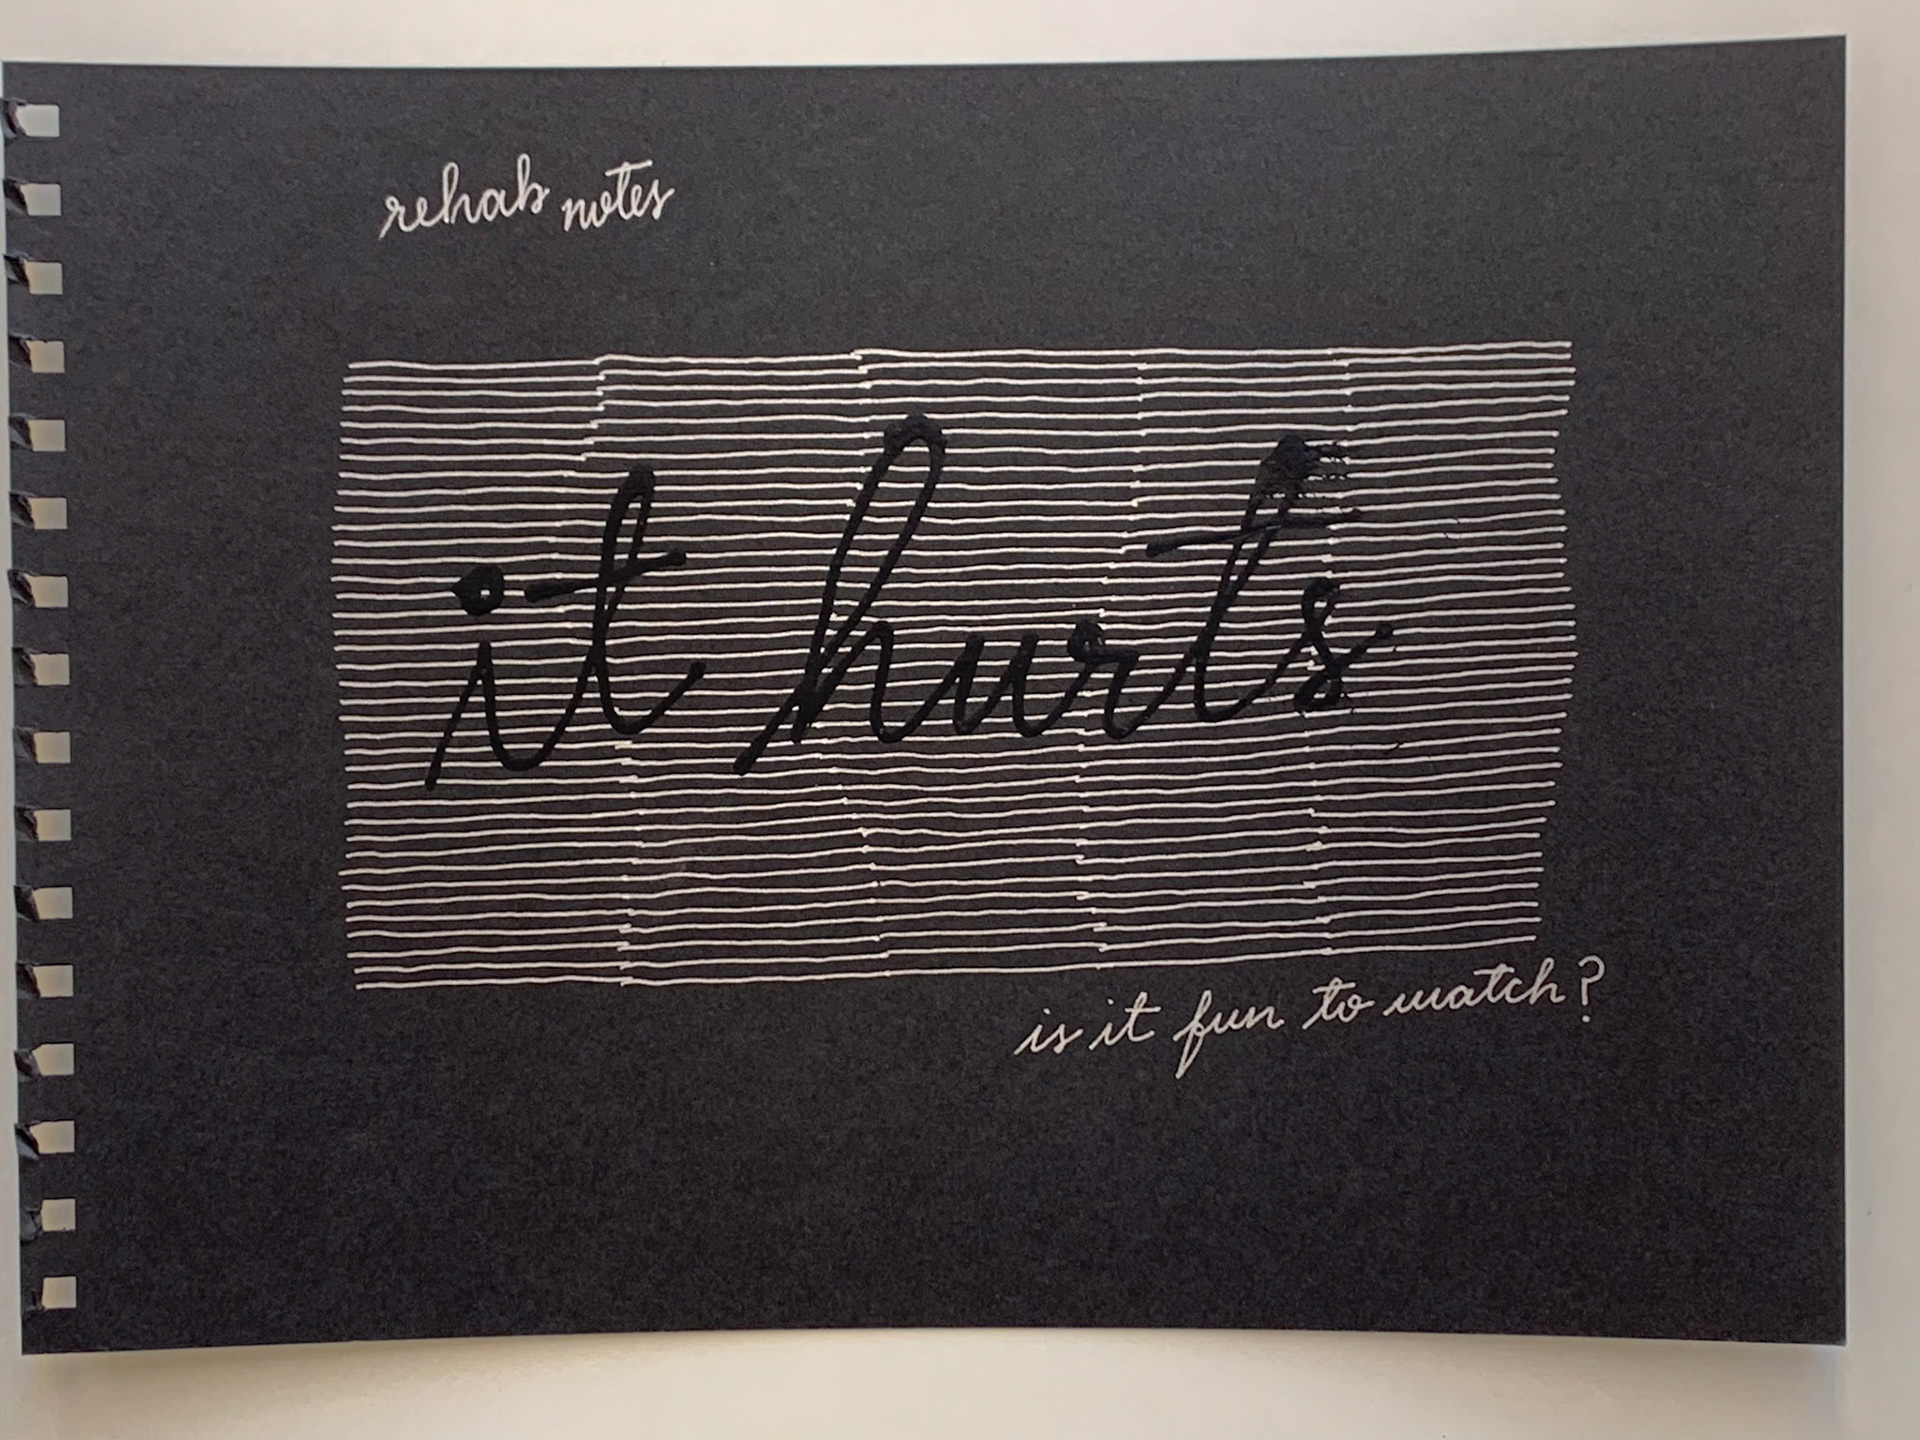 rehab notes
it hurts
is it fun to watch?